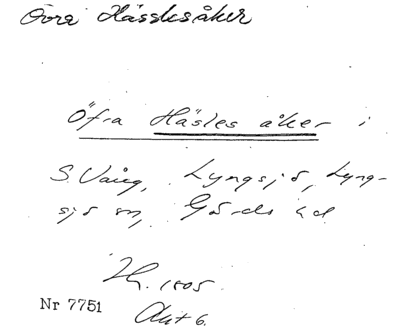 Övra Hässlesåker
Öfra Häsles åker i
S. Vång, Lyngsjö, Lyng-
sjö sn, Gärds hd
H. 1805
Nr 7751 Akt 6.